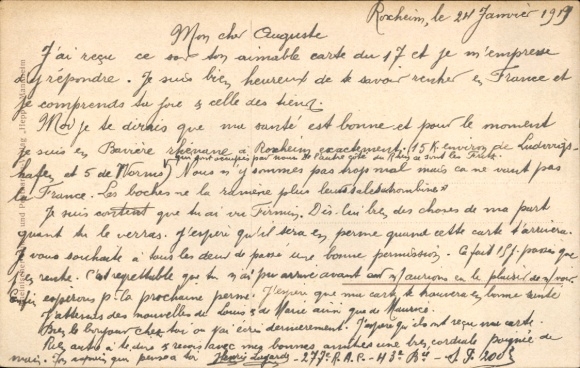 Roxheim, le 24 Janvier 1919
Mon cher Auguste
J'ai reçu ce soir ton aimable carte du 17 et je m'empresse
d'y répondre. Je suis bien heureux de te savoir rentrer en France et
je comprends ta joie & celle des tiens.
Moi je te dirais que ma santé est bonne et pour le moment
je suis en Bavière rhénane à Roxheim exactement (15 K environ de Ludwigs-
hafen et 5 de Worms) Nous n'y sommes pas trop mal mais ca ne vaut pas
qui sont occupés par nous et l'autre côté du Rhin ce sont les
la France. Les boches ne la ramène plus leurs sales
Je suis content que tu ai vu Firmin. Dis lui bien des choses de ma part
quant tu le verras. J'esperi qu'il sera en perme quand cette carte t'arrivera.
Je vous souhaite à tous les deux de passer une bonne permission. Ca fait 15 j. passés que
j'en rentre. C'est regrettable que tu n'ai pu arriver avant car n/ aurions eu le plaisir de n/ voir.
Enfin esperons p. la prochaine perme. J'esperi que ma carte te trouvera en bonne santé
J'attends des nouvelles de Louis & de Marie ainsi que de Maurice.
Bien le bonjour chez toi où j'ai écri dernierement. J'esperi qu'ils ont reçu ma carte.
Rien autre à te dire & reçois avec mes bonnes amitiés une bien cordiale poignée de
main. Ton copain que pense à toi Henri - 277e R.A.P. - 43e Bie - S.P. 200